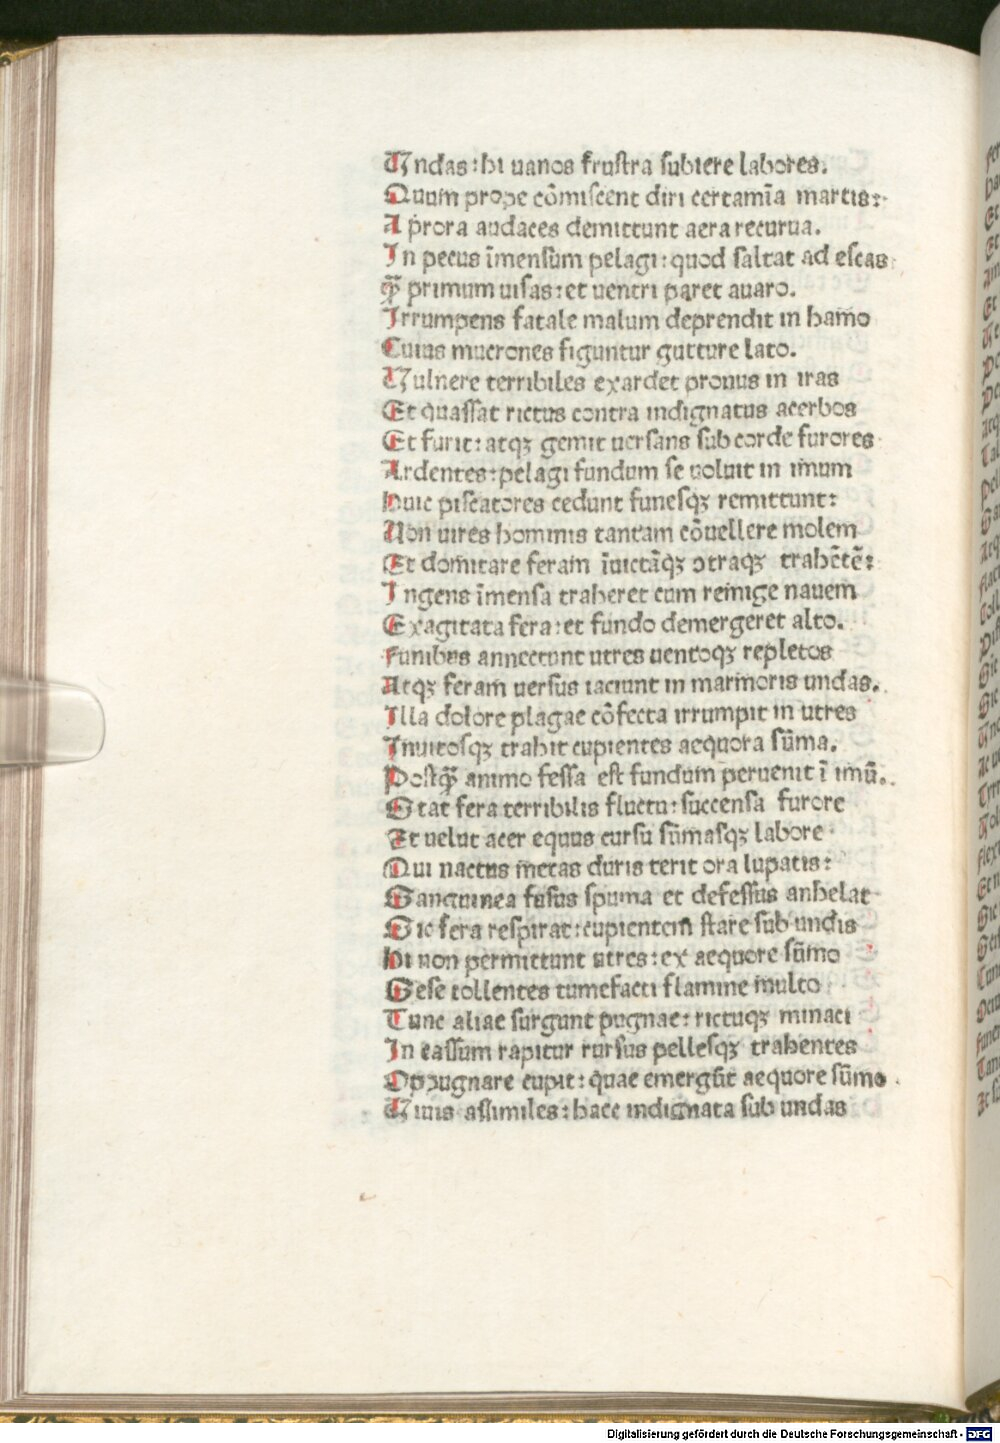 Undas: hi uanos frustra subiere labores.
Quum prope cōmiscent diri certamīa martis:
A prora audaces demittunt aera recurua.
In pecus īmensum pelagi: quod saltat ad escas
Q̄ primum uisas: et uentri paret auaro.
Irrumpens fatale malum deprendit in hamo
Cuius mucrones figuntur gutture lato.
Vulnere terribiles exardet pronus in iras
Et quassat rictus contra indignatus acerbos
Et furit: atqꝫ gemit uersans sub corde furores
Ardentes: pelagi fundum se uoluit in imum
Huic piscatores cedunt funesqꝫ remittunt:
Non uires hominis tantam cōuellere molem
Et domitare feram īuictāqꝫ ↄtraqꝫ trahētē:
Ingens īmensa traheret cum remige nauem
Exagitata fera: et fundo demergeret alto.
Funibus annectunt utres uentoqꝫ repletos
Atqꝫ feram uersus iaciunt in marmoris undas.
Illa dolore plagae cōfecta irrumpit in utres
Inuitosqꝫ trahit cupientes aequora sūma.
Postq̄ animo fessa est fundum peruenit ī imū.
Stat fera terribilis fluctu: succensa furore
Et uelut acer equus cursu sūmasqꝫ labore
Qui nactus metas duris terit ora lupatis:
Sanguinea fusus spuma et defessus anhelat
Sic fera respirat: cupientem stare sub undis
Hi non permittunt utres: ex aequore sūmo
Sese tollentes tumefacti flamine multo
Tunc aliae surgunt pugnae: rictuqꝫ minaci
In cassum rapitur rursus pellesqꝫ trahentes
Oppugnare cupit: quae emergūt aequore sūmo.
Viuis assimiles: haec indignata sub undas
Digitalisierung gefördert durch die Deutsche Forschungsgemeinschaft - DFG